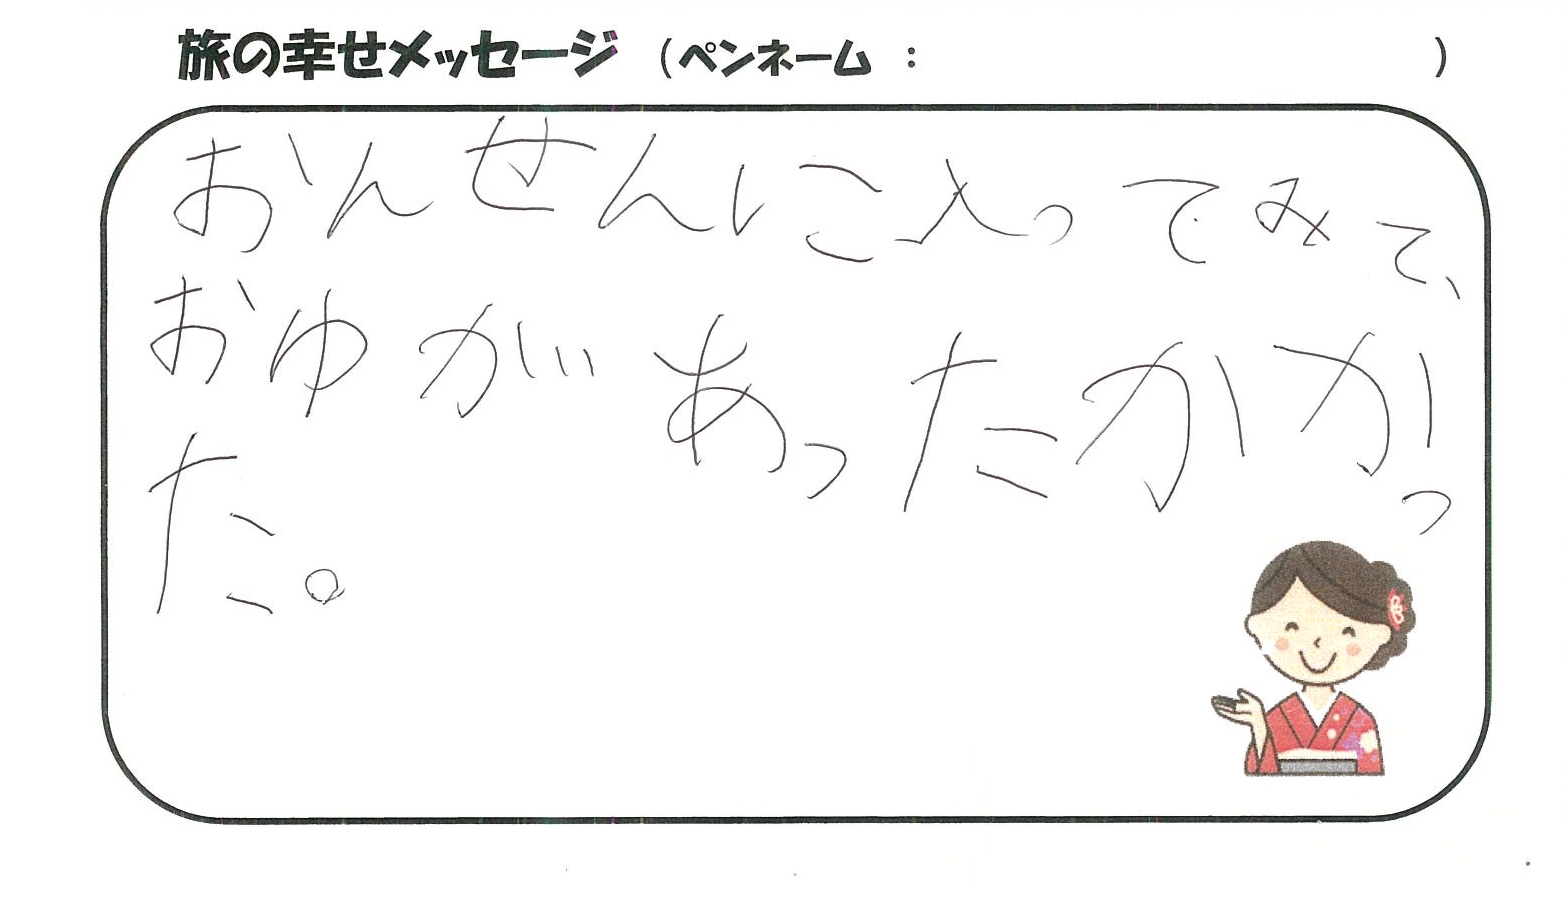 旅の幸せメッセージ（ペンネーム：　　　）
おんせんに入ってみて、
おゆがあったかかっ
た。